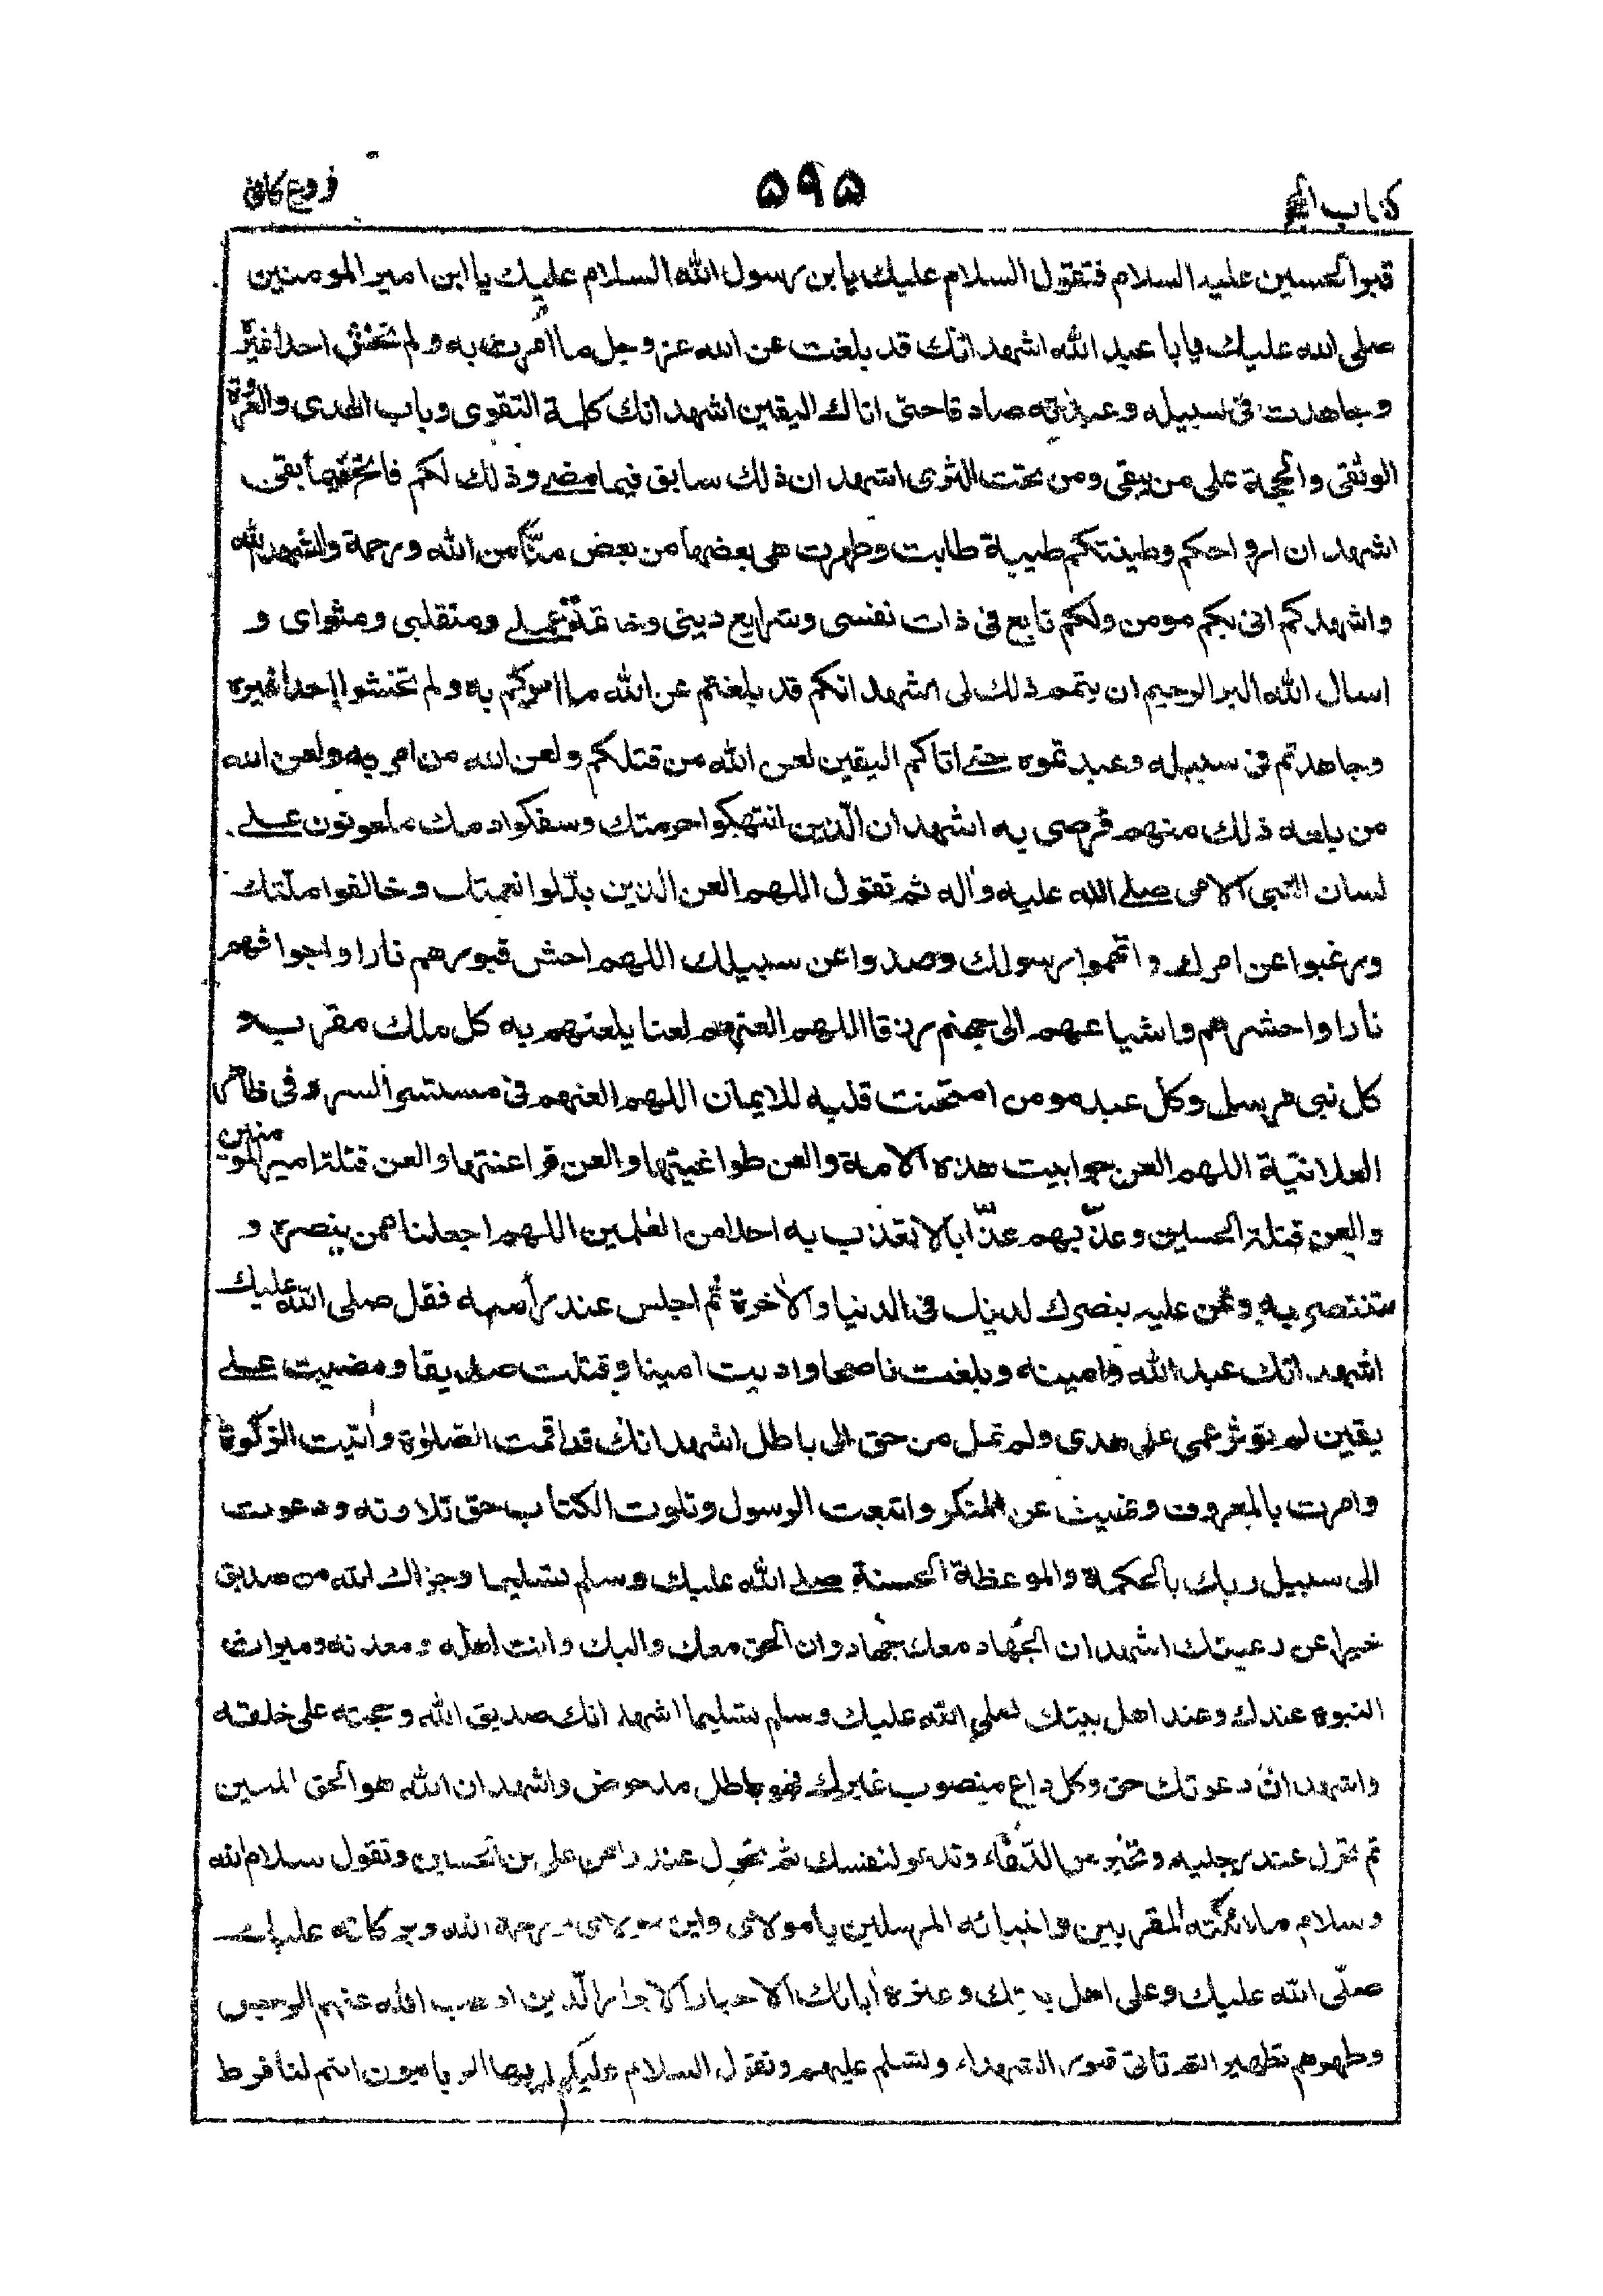 كتاب الحج ۵۹۵ فروع كافى
قبر الحسين عليه السلام فتقول السلام عليك يا بن رسول الله السلام عليك يا ابن امير المومنين
صلى الله عليك يا با عبد الله اشهد انك قد بلغت عن الله عز وجل ما امرت به ولم تخش احدا غيره
وجاهدت فى سبيله وعبدته صادقا حتى اتاك اليقين اشهد انك كلمة التقوى وباب الهدى والعروة
الوثقى والحجة على من يبقى ومن تحت الثرى اشهد ان ذلك سابق فيما مضى وذلك لكم فاتح فيما بقى
اشهد ان ارواحكم وطينتكم طيبة طابت وطهرت هى بعضها من بعض منّا من الله ورحمة واشهد الله
واشهدكم انى بكم مومن ولكم تابع فى ذات نفسى وشرايع دينى وخاتمة عملى ومنقلبى ومثواى و
اسال الله البر الرحيم ان يتمم ذلك لى اشهد انكم قد بلغتم عن الله ما امركم به ولم تخشوا احدا غيره
وجاهدتم فى سبيله وعبدتموه حتى اتاكم اليقين لعن الله من قتلكم ولعن الله من امر به ولعن الله
من بلغه ذلك منهم فرضى به اشهد ان الّذين انتهكوا حرمتك وسفكوا دمك ملعونون على
لسان النّبى الامى صلى الله عليه واله ثم تقول اللهم العن الذين بدّلوا نعمتك وخالفوا ملّتك
ورغبوا عن امرك واتهموا رسولك وصدوا عن سبيلك اللهم احش قبورهم نارا واجوافهم
نارا واحشرهم واشياعهم الى جهنم زرقا اللهم العنهم لعنا يلعنهم به كل ملك مقرب و
كل نبى مرسل وكل عبد مومن امتحنت قلبه للايمان اللهم العنهم فى مستسر السر وفى ظاهر
العلانيّة اللهم العن جوابيت هذه الامة والعن طواغيتها والعن فراعنتها والعن قتلة امير المومنين
والعن قتلة الحسين وعذّبهم عذّابا لا تعذب به احدا من العلمين اللهم اجعلنا ممن ينصره و
تنتصر به وتمن عليه بنصرك لدينك فى الدنيا والاخرة ثم اجلس عند رأسه فقل صلى الله عليك
اشهد انك عبد الله وامينه وبلغت ناصحا واديت امينا وقتلت صديقا ومضيت على
يقين لم تؤثر عمى على هدى ولم تمل من حق الى باطل اشهد انك قد اقمت الصّلوة واتيت الزكوة
وامرت بالمعروف ونهيت عن المنكر واتبعت الرسول وتلوت الكتاب حق تلاوته ودعوت
الى سبيل ربك بالحكمة والموعظة الحسنة صلى الله عليك وسلم تسليما وجزاك الله من صديق
خيرا عن رعيتك اشهد ان الجهاد معك جهاد وان الحق معك واليك وانت اهله ومعدنه وميراث
النبوه عندك وعند اهل بيتك صلى الله عليك وسلم تسليما اشهد انك صديق الله وحجته على خلقه
واشهد انّ دعوتك حق وكل داع منصوب غيرك فهو باطل مدحوض واشهد ان الله هو الحق المبين
ثم تحول عند رجليه وتخير من الدّعاء وتدعو لنفسك ثم تحول عند راس على بن الحسين وتقول سلام الله
وسلام ملائكته المقربين وانبيائه المرسلين يا مولاى وابن مولاى ورحمة الله وبركاته عليك
صلّى الله عليك وعلى اهل بيتك وعترة ابائك الاخيار الابرار الّذين اذهب الله عنهم الرجس
وطهرهم تطهيرا ثم تاتى قبور الشهداء وتسلم عليهم وتقول السلام عليكم ايها الربانيون انتم لنا فرط